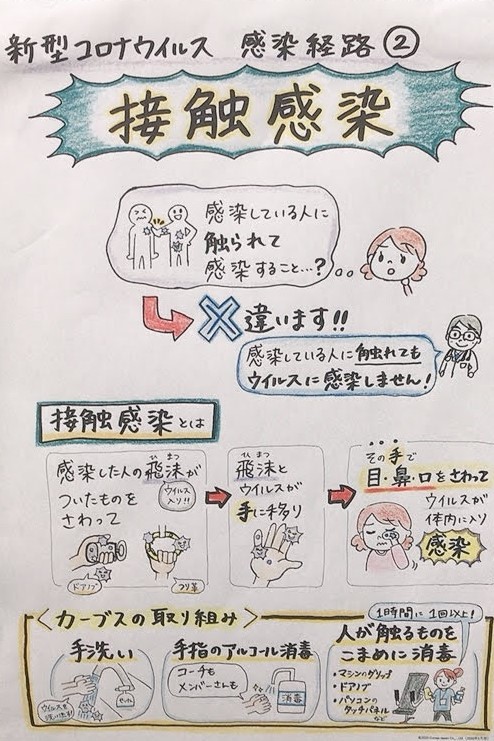 新型コロナウイルス 感染経路②
接触感染
感染している人に
触られて
感染すること…?
違います!!
感染している人に触れても
ウイルスに感染しません!
接触感染とは
感染した人の飛沫が
ひまつ
ウイルス
入り!!
ついたものを
さわって
ドアノブ
つり革
飛沫と
ひまつ
ウイルスが
手に移り
その手で
目・鼻・口をさわって
ウイルスが
体内に入り
感染
<カーブスの取り組み>
手洗い
ウイルスを
洗い流す!
手指のアルコール消毒
コーチも
メンバーさんも
消毒
1時間に1回以上!
人が触るものを
こまめに消毒
・マシンのグリップ
・ドアノブ
・パソコンの
タッチパネル
など